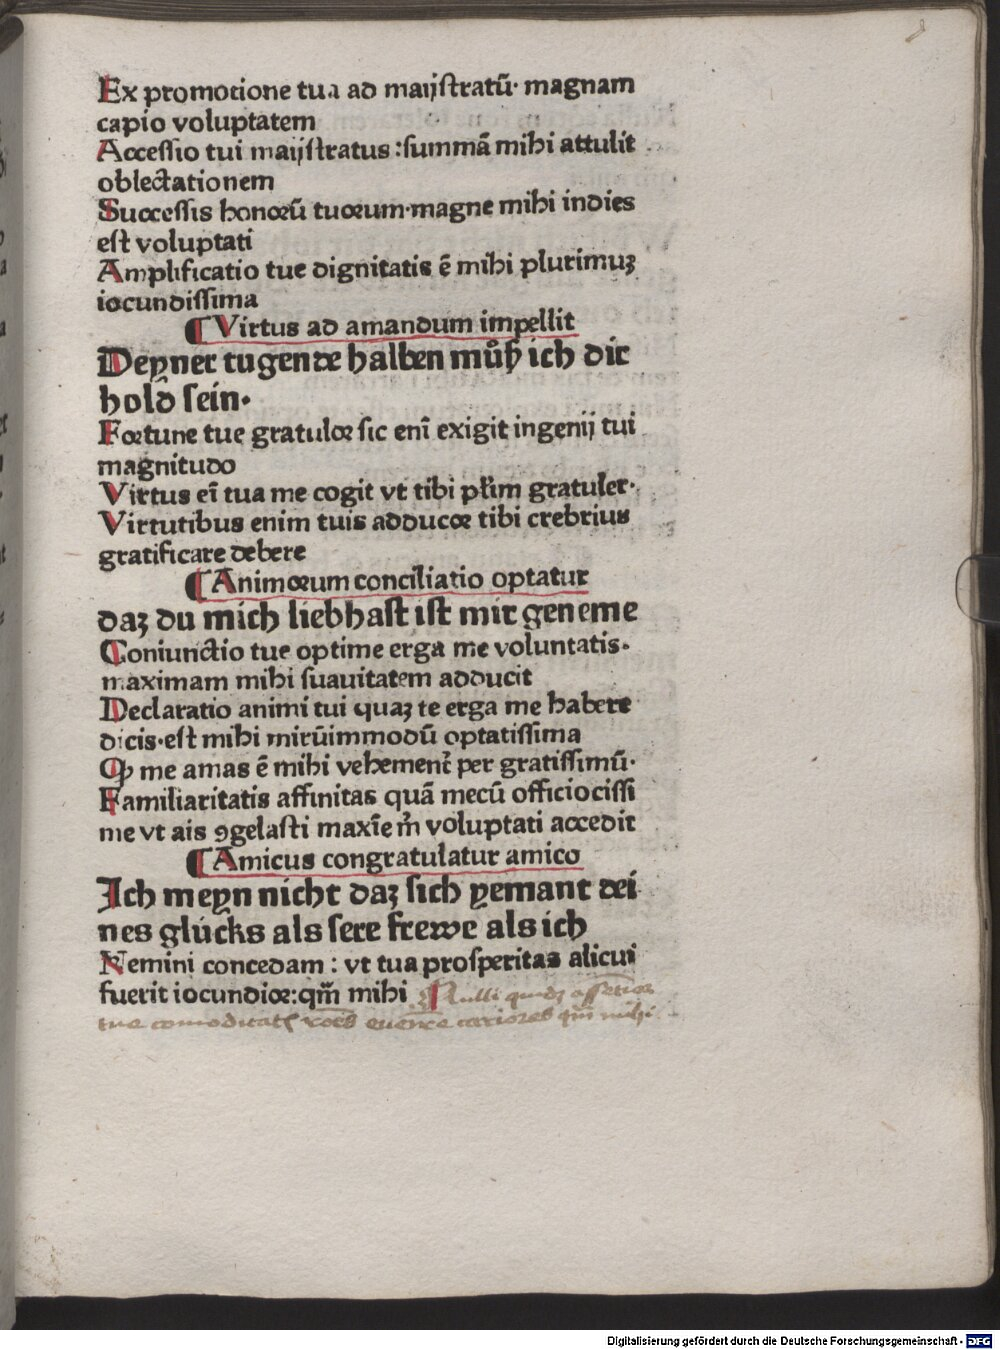 Ex promotione tua ad maijſtratū· magnam
capio voluptatem
Acceſſio tui maijſtratus :ſummā mihi attulit
oblectationem
Succeſſis honorū tuorum·magne mihi indies
eſt voluptati
Amplificatio tue dignitatis ē mihi plurimuꝫ
iocundiſſima
¶ Virtus ad amandum impellit
Deyner tugende halben můß ich dir
hold ſein·
Fortune tue gratulor ſic enī exigit ingenij tui
magnitudo
Virtus eī tua me cogit vt tibi płim gratuler·
Virtutibus enim tuis adducor tibi crebrius
gratificare debere
¶ Animorum conciliatio optatur
daz du mich liebhaſt iſt mir geneme
Coniunctio tue optime erga me voluntatis·
maximam mihi ſuauitatem adducit
Declaratio animi tui quaꝫ te erga me habere
dicis·eſt mihi mirūimmodū optatiſſima
Ꝙ me amas ē mihi vehement̄ per gratiſſimū·
Familiaritatis affinitas quā mecū officiociſſi
me vt ais ꝯgelaſti maxīe m̄ voluptati accedit
¶ Amicus congratulatur amico
Ich meyn nicht daz ſich yemant dei
nes glücks als ſere frewe als ich
Nemini concedam : vt tua proſperitas alicui
fuerit iocundior:qm̄ mihi Nulli
tue cariores qm̄ mihi
Digitalisierung gefördert durch die Deutsche Forschungsgemeinschaft - DFG